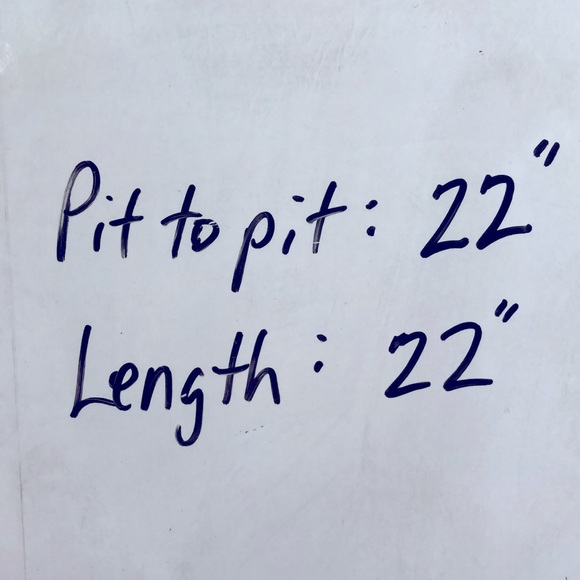 Pit to pit: 22"
Length: 22"